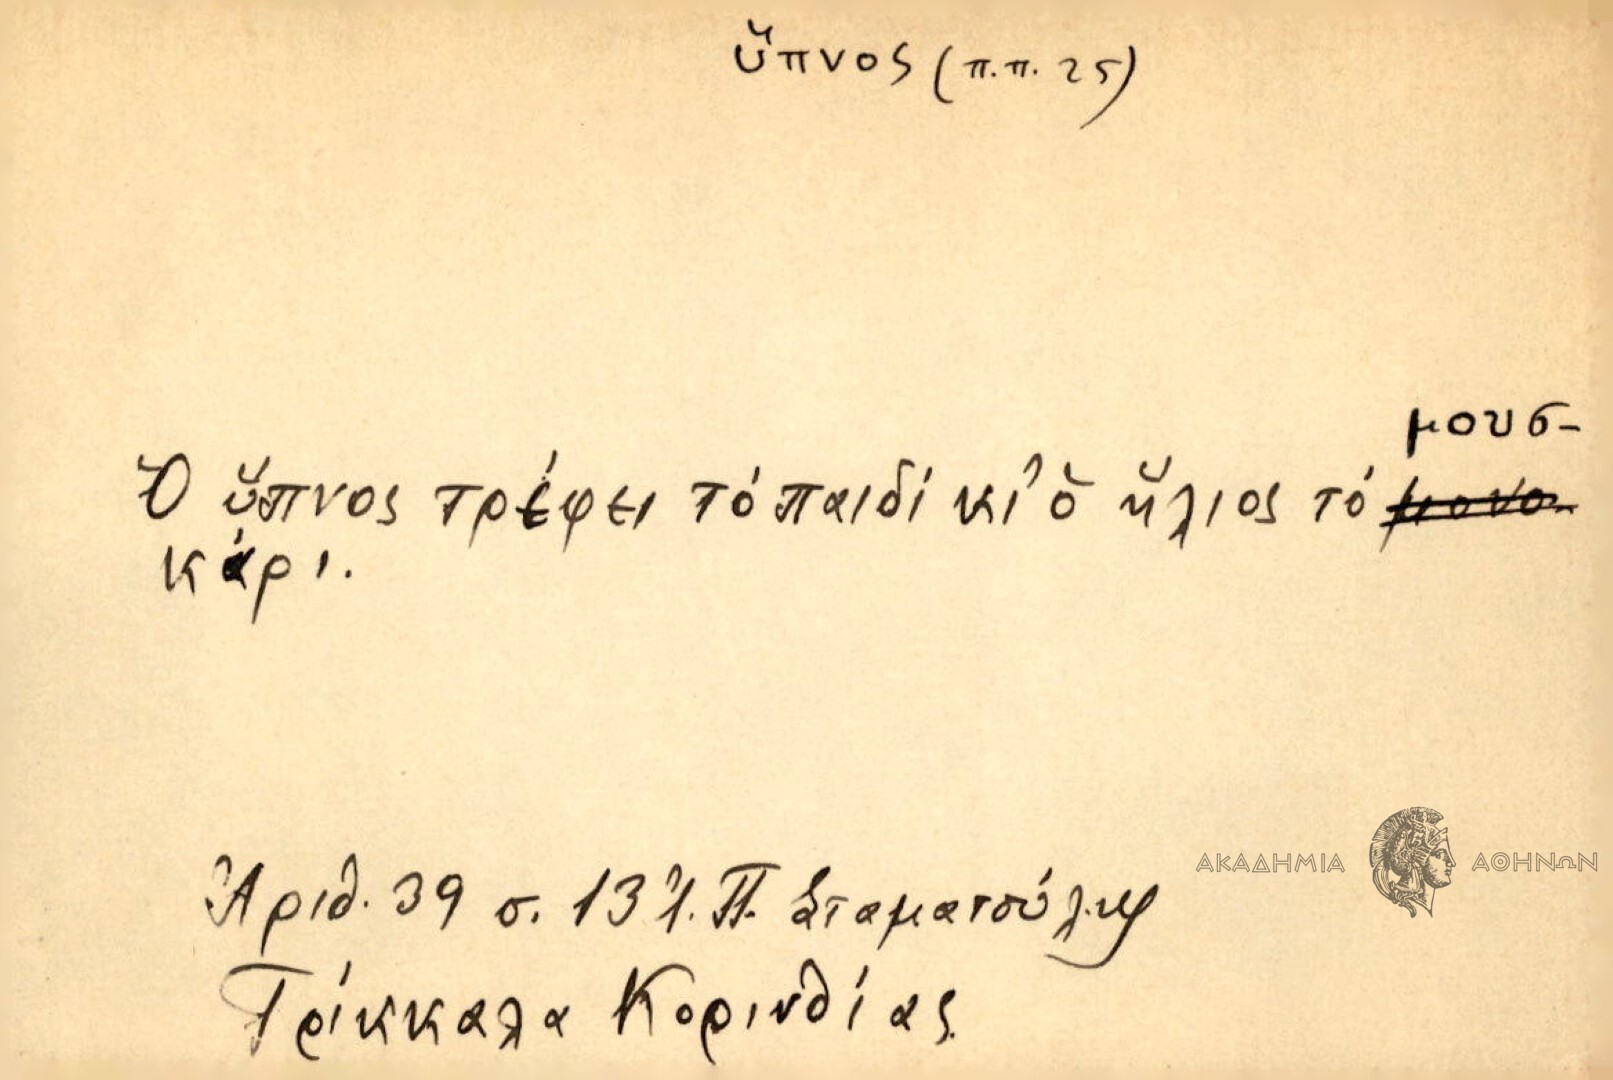 ὕπνος (π.π. 25)
μουσ-
Ὁ ὕπνος τρέφει τό παιδί κι' ὁ ἥλιος τό μονο-
κάρι.
Ἀριθ. 39 σ. 13 Π. Σταματούλης
Τρίκκαλα Κορινθίας
ΑΚΑΔΗΜΙΑ ΑΘΗΝΩΝ